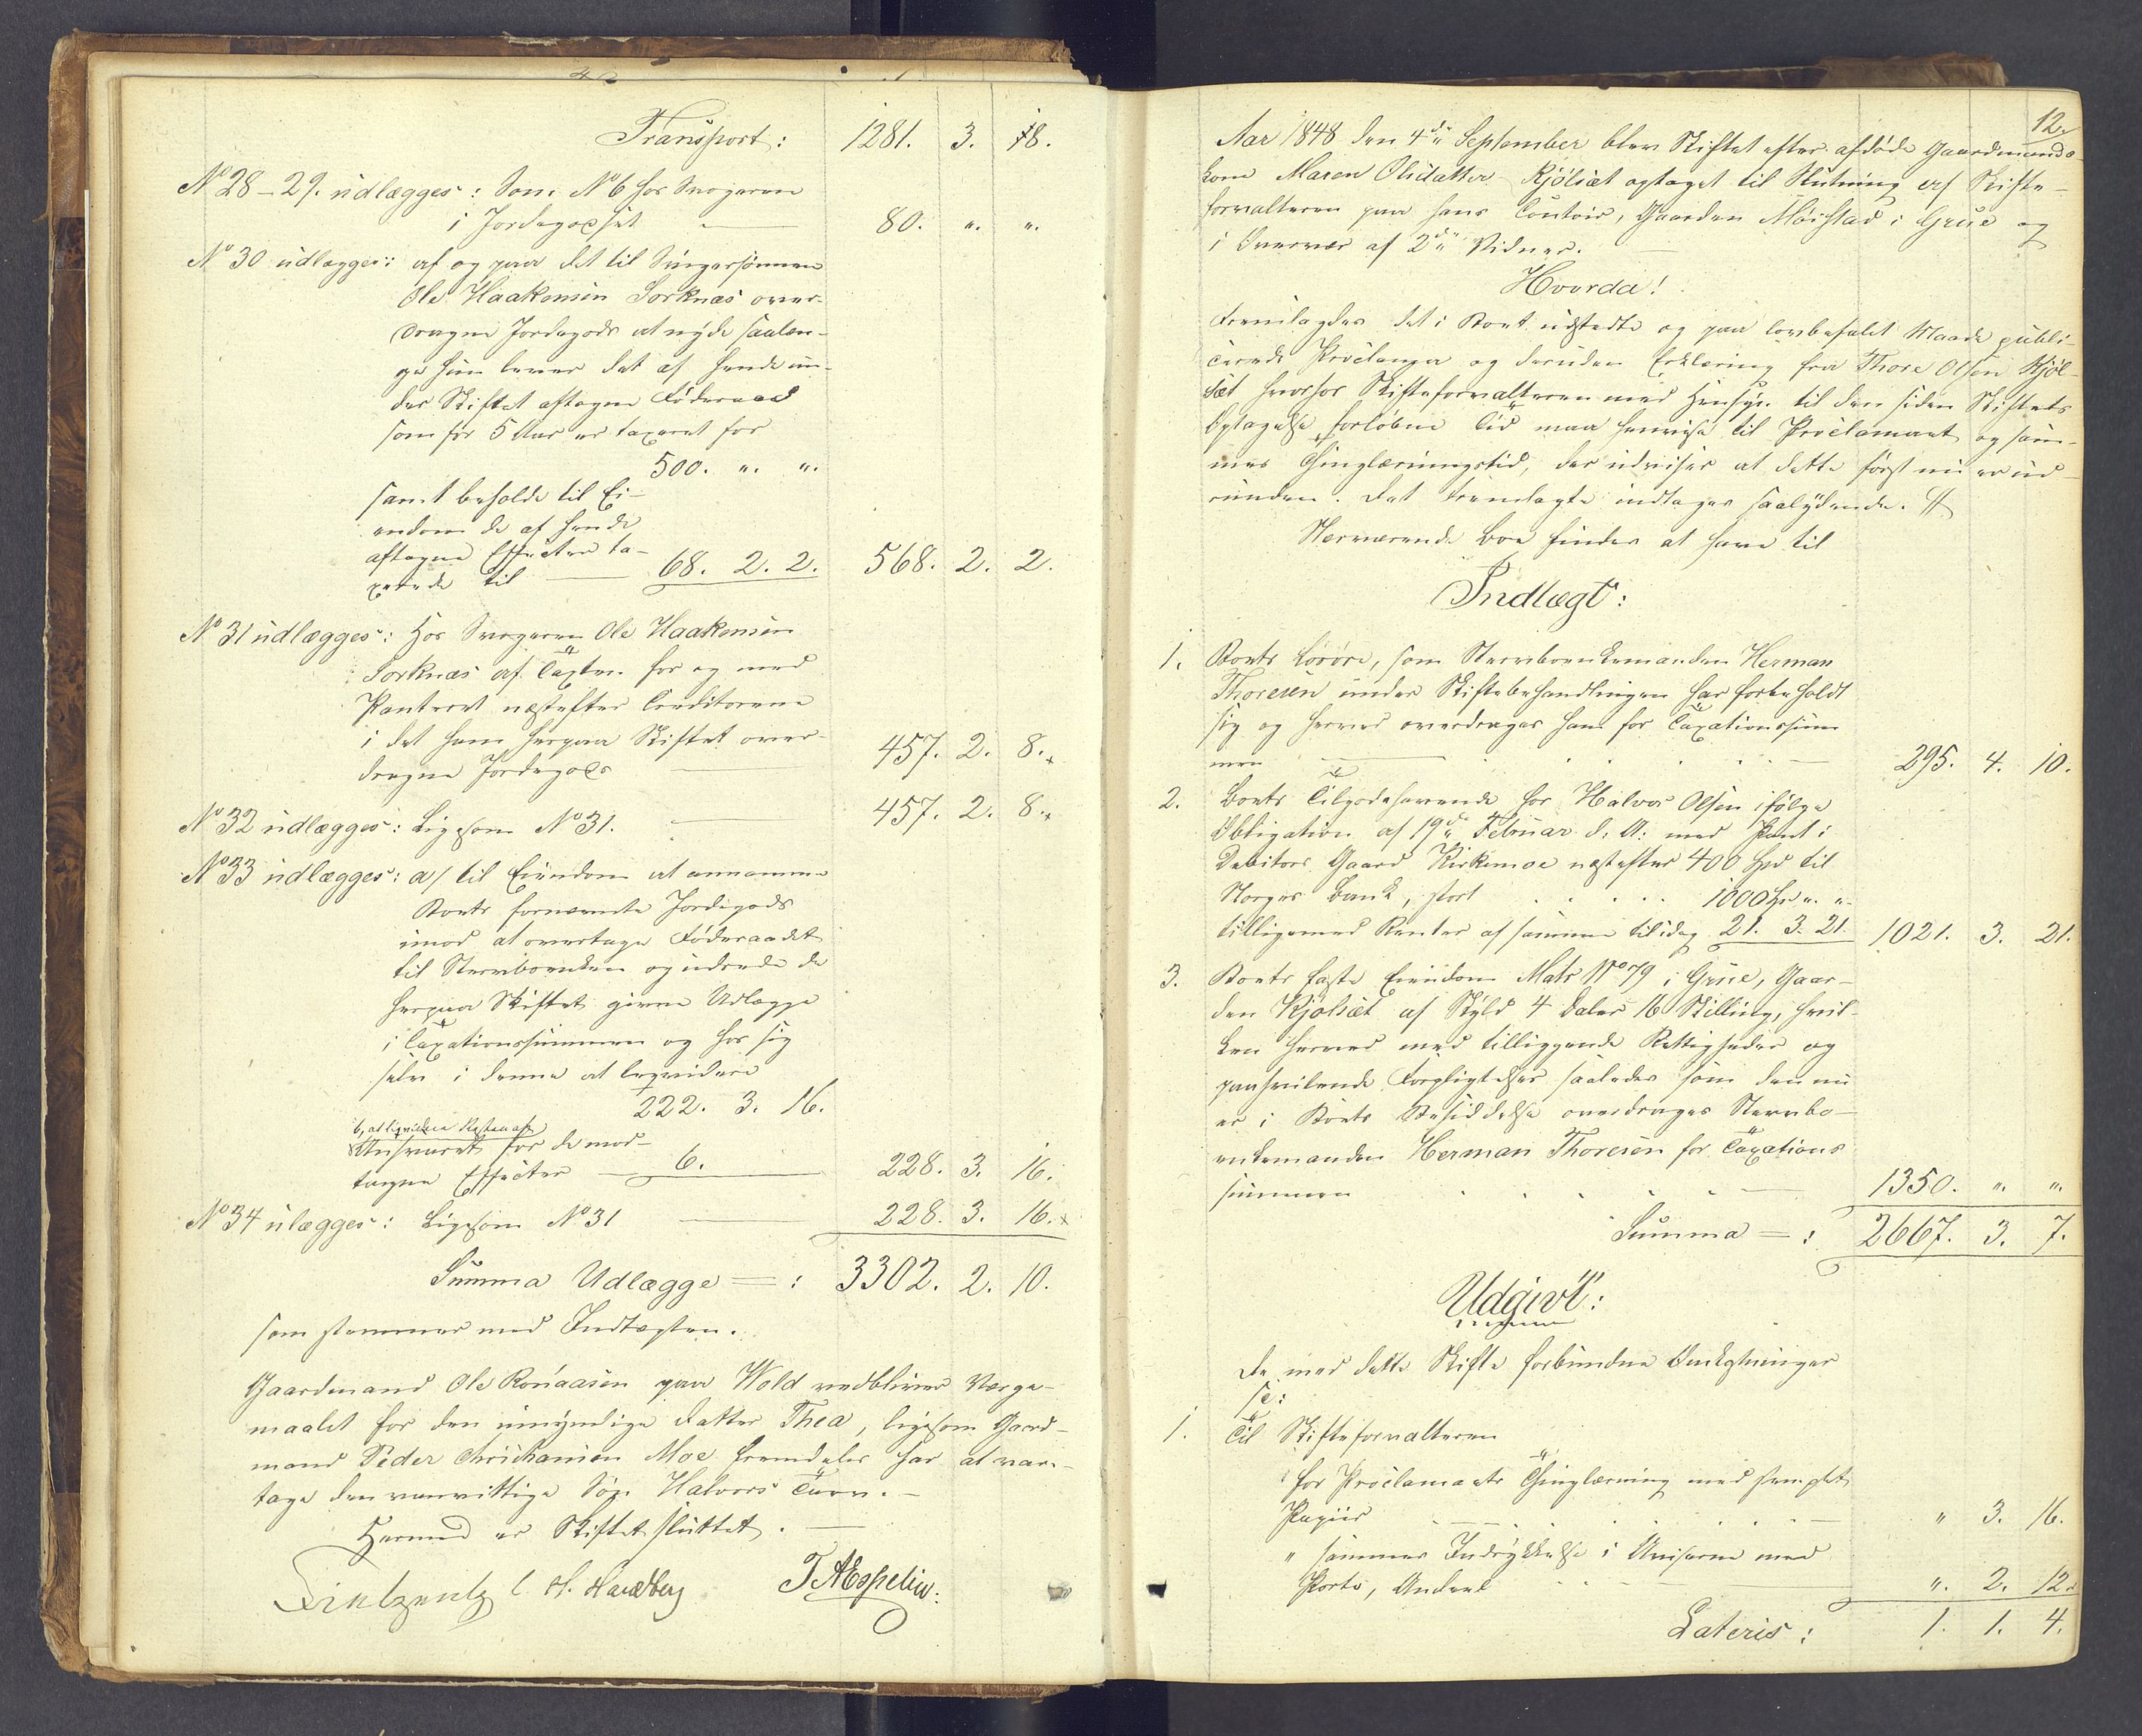 Transport: 1281. 3. 18.
No 28–29. udlægges: Som No 6 hos Svogeren
i Jordegodset — 80. ". ".
No 30 udlægges: af og paa det til Svigersønnen
Ole Haakensen Sorknæs over-
dragne Jordegods at nyde saalæn-
ge hun lever det af hende un-
der Skiftet aftagne Föderaad
som for 5 Aar er taxeret for
500. ". ".
samt beholde til Ei-
endom de af hende
aftagne Effecter ta-
xerede til — 68. 2. 2. 568. 2. 2.
No 31 udlægges: Hos Svogeren Ole Haakensen
Sorknæs af Taxten for og med
Panteret næstefter Creditorene
i det ham herpaa Skiftet over-
dragne Jordegods — 457. 2. 8.
No 32 udlægges: Ligesom No 31. — 457. 2. 8.
No 33 udlægges: a/ til Eiendom at annamme
Boets fornævnte Jordegods
imod at overtage Föderaadet
til Stervboenken og udrede de
herpaa Skiftet givne Udlægge
i Taxationssummen og hos sig
selv i denne at liqvidere
222. 3. 16.
b, at liqvidere Resten af
Ansvaret for de mod-
tagne Effecter — 6. — 228. 3. 16.
No 34 ulægges: Ligesom No 31 — 228. 3. 16.
Summa Udlægge =: 3302. 2. 10.
som stemmer med Indtægten.
Gaardmand Ole Ronaasen paa Wold vedbliver Værge-
maalet for den umyndige Datter Thea, ligesom Gaard-
mand Peder Christiansen Moe fremdeles har at vare-
tage den vanvittige Søn Halvors Tarv. —
Hermed er Skiftet sluttet. —
C. H. Handberg T. A. Espelin.
12.
Aar 1848 den 4de September blev Skiftet efter afdöde Gaardmands-
kone Maren Olsdatter Kjölsæt optaget til Slutning af Skifte-
forvalteren paa hans Contoir, Gaarden Möistad i Grue og
i Overvær af 2de Vidner. —
Hvorda!
Fremlagdes det i Boet udstedte og paa lovbefalet Maade publi-
cerede Proclama og desuden Erklæring fra Thore Olsen Kjöl-
sæt hvorfor Skifteforvalteren med Hensyn til den siden Skiftets
Optagelse forløbne Tid maa henvise til Proclamaet og sam-
mes Thinglæsningstid, der udviser at dette først nu er ud-
runden. Det fremlagte indtages saalydende. #
Nærværende Boe findes at have til
Indtægt:
1. Boets Lösöre, som Stervboenkemanden Herman
Thoresen under Skiftebehandlingen har forbeholdt
sig og herved overdrages ham for Taxationssum
men — 295. 4. 10.
2. Boets Tilgodehavende hos Halvor Olsen ifölge
Obligation af 19de Februar d: A: med Pant i
Debitors Gaard Kirkemoe næstefter 400 Spd til
Norges Bank, stort 1000 Spd ". ".
tilligemed Renter af samme til idag 21. 3. 21. 1021. 3. 21.
3. Boets faste Eiendom Matr No 79 i Grue, Gaar-
den Kjölsæt af Skyld 4 Daler 16 Skilling, hvil-
ken herved med tilliggende Rettigheder og
paahvilende Forpligtelser saaledes som den nu
er i Boets Besiddelse overdrages Stervbo-
enkemanden Herman Thoresen for Taxations
summen — 1350. " "
Summa =: 2667. 3. 7.
Udgivt:
De med dette Skifte forbundne Omkostninger
se:
1. Til Skifteforvalteren
for Proclamaets Thinglæsning med stemplet
Papiir — " 3. 16.
" sammes Indrykkelse i Aviserne med
Porto, Andeel — ". 2. 12.
Lateris: 1. 1. 4.